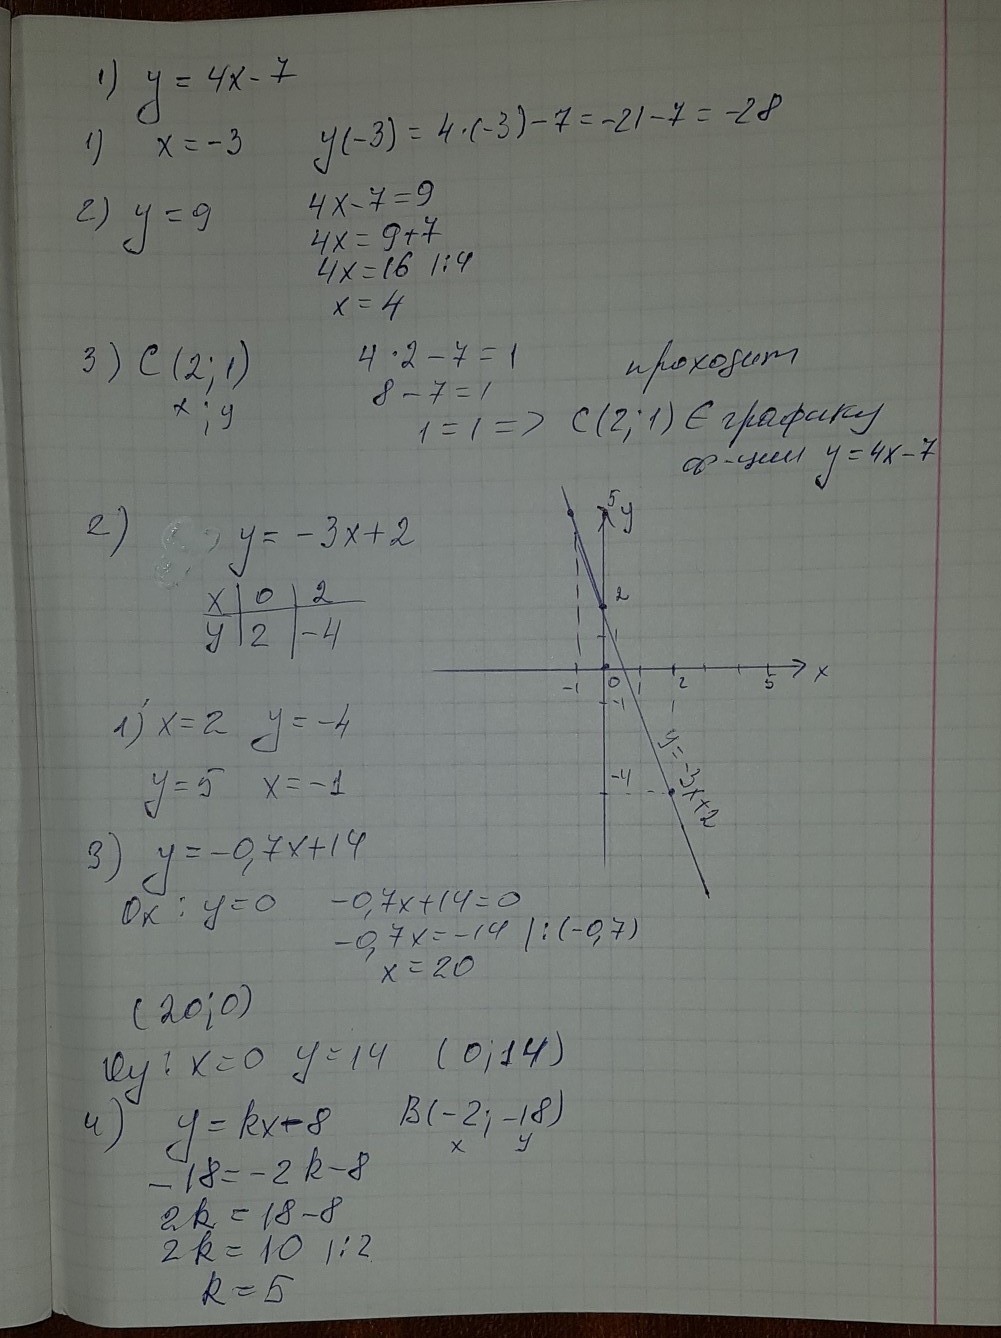 1) y = 4x - 7
1) x = -3 y(-3) = 4·(-3) - 7 = -21 - 7 = -28
2) y = 9 4x - 7 = 9
4x = 9 + 7
4x = 16 |:4
x = 4
3) C (2; 1) 4 · 2 - 7 = 1 проходит
x ; y 8 - 7 = 1
1 = 1 => C(2; 1) Є графику
ф-ции y = 4x - 7
2) y = -3x + 2
x | 0 | 2
y | 2 | -4
5 y
2
1
-1 0 1 2 5 x
-1
-4
y = -3x + 2
1) x = 2 y = -4
y = 5 x = -1
3) y = -0,7x + 14
Ox : y = 0 -0,7x + 14 = 0
-0,7x = -14 |:(-0,7)
x = 20
(20; 0)
Oy : x = 0 y = 14 (0; 14)
4) y = kx - 8 B(-2; -18)
x y
-18 = -2k - 8
2k = 18 - 8
2k = 10 |:2
k = 5